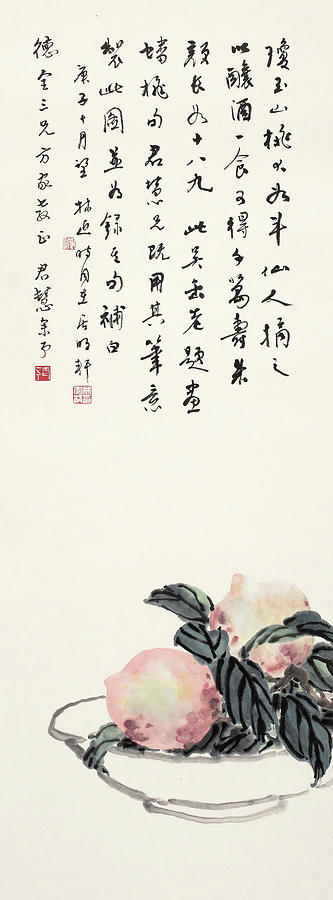 瓊玉山桃大如斗仙人摘之
以釀酒一食可得千萬壽朱
顏長如十八九 此吳缶老題畫
蟠桃句君慧兄既用其筆意
製此圖並為錄其句補白
庚子十月望 林近 時同在 明軒
德全三兄方家教正 君慧